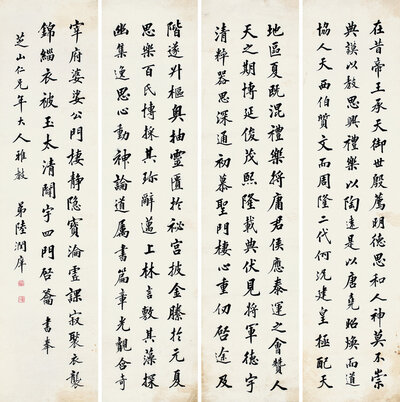 在昔帝王承天御世殷薦明德思和人神莫不崇
典謨以教思興禮樂以陶遠是以唐堯昭煥而道
協人天西伯質文而周隆二代何況建皇極配天
地區夏既混禮樂將庸君侯應泰運之會贊人
天之期博延俊茂熙隆載典伏見將軍德宇
清粹器思深通初慕聖門棲心重仞啓途及
階遂升樞奧抽靈匱於秘宮披金縢於元夏
思樂百氏博採其珍辭邁上林言敷其藻探
幽集逸思心動神論道屬書篇章光覿含奇
宰府婆娑公門棲靜隱寶淪虛課寂裘衣襲
錦緇衣被玉太清闢宇四門啓籥 書奉
芝山仁兄年大人雅教 弟陸潤庠